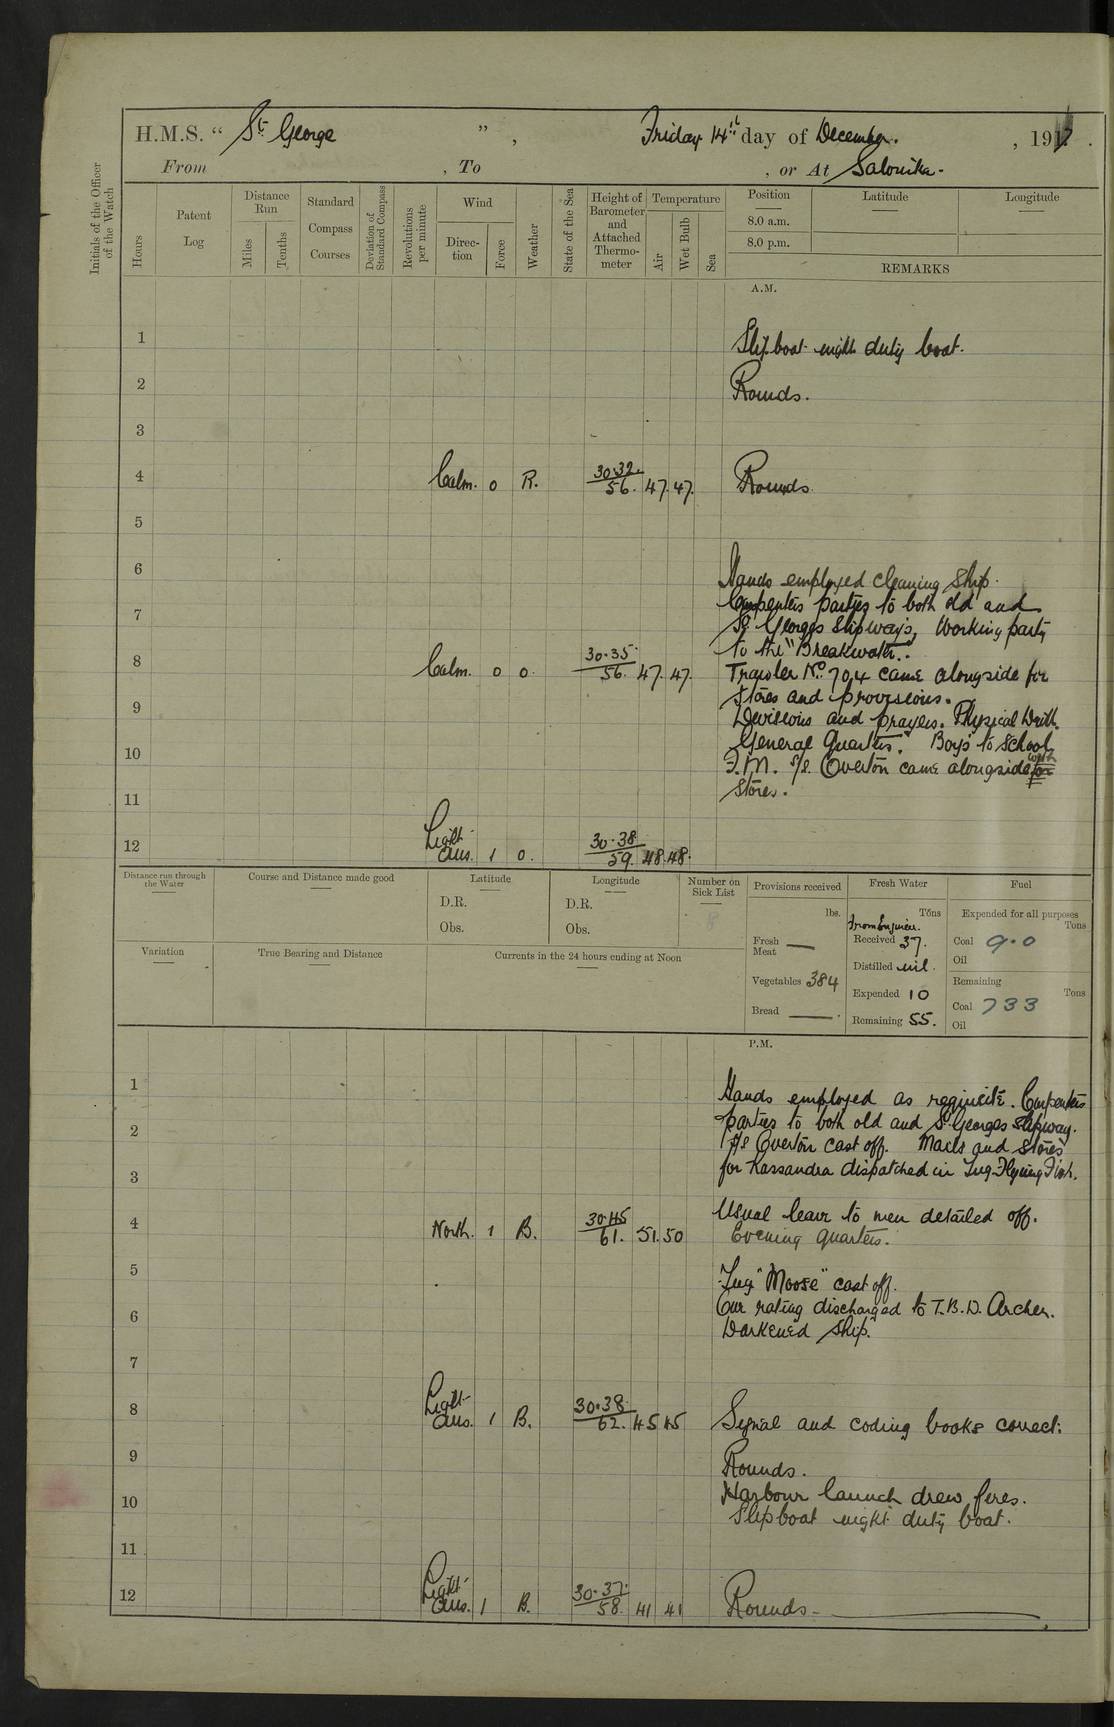 H.M.S. “ St. George ” , Friday 14th day of December. , 1917 .
From , To , or At Salonika.
Initials of the Officer of the Watch
Hours
Patent Log
Distance Run
Miles
Tenths
Standard Compass Courses
Deviation of Standard Compass
Revolutions per minute
Wind
Direction
Force
Weather
State of the Sea
Height of Barometer and Attached Thermometer
Temperature
Air
Wet Bulb
Sea
Position Latitude Longitude
8.0 a.m.
8.0 p.m.
REMARKS
A.M.
1 Slipboat night duty boat.
2 Rounds.
3
4 Calm. 0 R. 30.32 56. 47. 47. Rounds
5
6 Hands employed cleaning ship.
Carpenters parties to both old and
7 St. Georges slipways, Working party
to the "Breakwater."
8 Calm. 0 0. 30.35 56. 47. 47. Trawler No. 704 came alongside for
stores and provisions.
9 Divisions and prayers. Physical Drill.
General Quarters. Boys to School
10 F.M. S/S. Overton came alongside for with
stores.
11
12 Light Airs. 1 0. 30.38 59. 48. 48.
Distance run through the Water
Course and Distance made good
Latitude
D.R.
Obs.
Longitude
D.R.
Obs.
Number on Sick List
8
Provisions received
lbs.
Fresh Meat —
Vegetables 384
Bread —
Fresh Water
Tons
from Engineer.
Received 37.
Distilled nil.
Expended 10
Remaining 55.
Fuel
Expended for all purposes
Tons
Coal 9.0
Oil
Remaining
Tons
Coal 733
Oil
Variation
True Bearing and Distance
Currents in the 24 hours ending at Noon
P.M.
1 Hands employed as requisite. Carpenters
parties to both old and St Georges slipway.
2 S/S Overton cast off. Mails and stores
3 for Kassandra dispatched in Tug Flying Fish.
4 North. 1 B. 30.45 61. 51. 50 Usual leave to men detailed off.
Evening Quarters.
5 Tug "Moose" cast off.
One rating discharged to T.B.D. Archer.
6 Darkened ship.
7
8 Light Airs. 1 B. 30.38 62. 45 45 Signal and coding books correct.
9 Rounds.
10 Harbour launch drew fires.
Slipboat night duty boat.
11
12 Light Airs. 1 B. 30.37. 58. 41 41 Rounds.